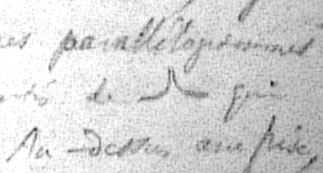 es parallélogrammes
de qui
Au-dessus, une frise,